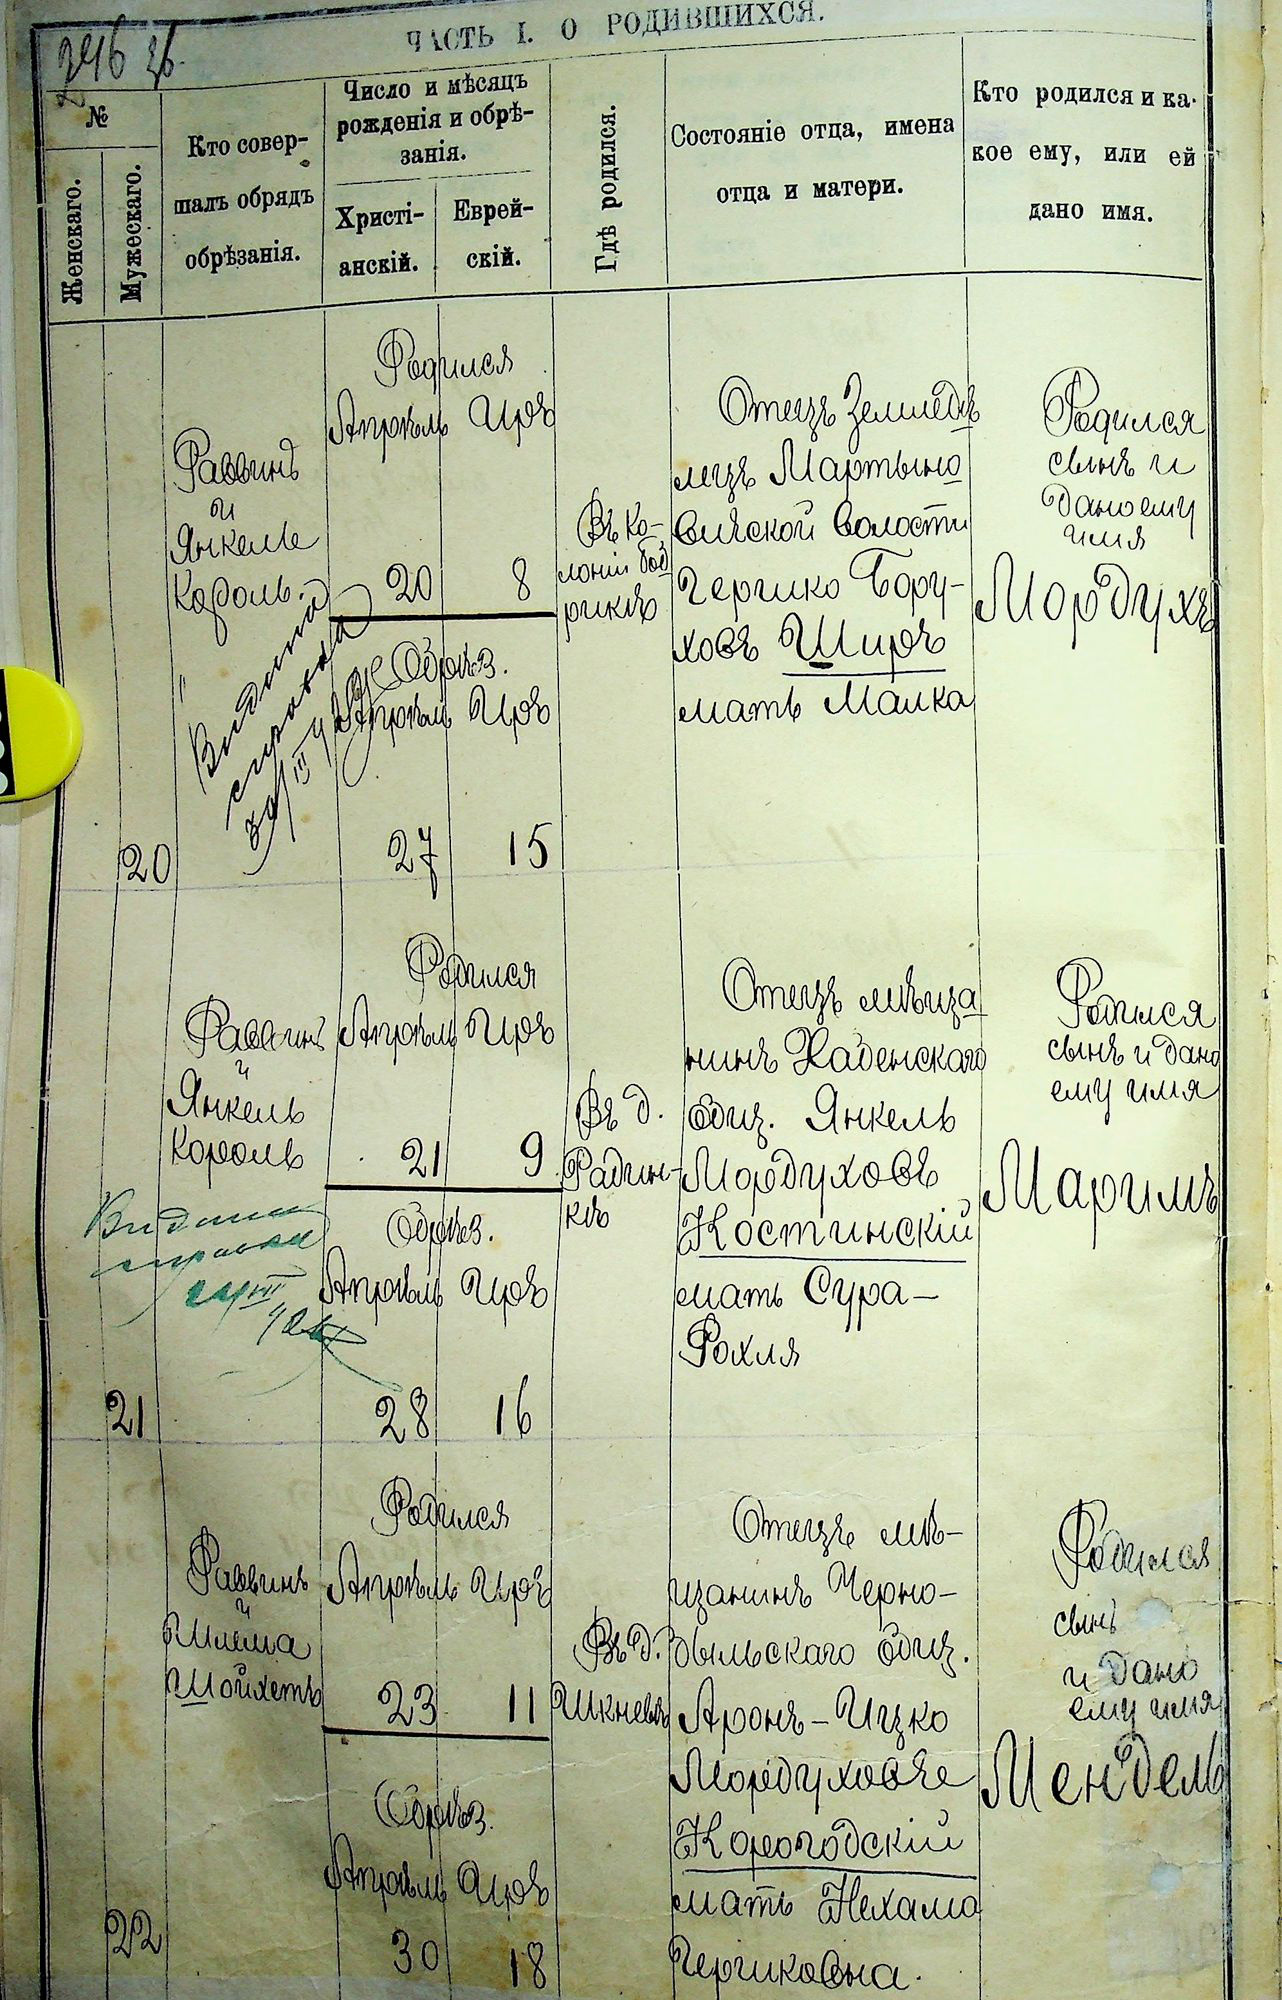 ЧАСТЬ I. О РОДИВШИХСЯ.
№
Женскаго.
Мужескаго.
Кто совер-
шалъ обрядъ
обрѣзанія.
Число и мѣсяцъ
рожденія и обрѣ-
занія.
Христі-
анскій.
Еврей-
скій.
Гдѣ родился.
Состояніе отца, имена
отца и матери.
Кто родился и ка-
кое ему, или ей
дано имя.
20
Раввинъ
и
Янкель
Король.
Выдана
справка
Родился
Апрѣль Иръ
20 8
Обрѣз.
Апрѣль Иръ
27 15
Въ Ко-
лоніи
Отецъ Земледѣ
лецъ Мартыно
вичской волости
Гершко Бору-
ховъ Ширъ
мать Малка
Родился
сынъ и
дано ему
имя
Мордухъ
21
Раввинъ
и
Янкель
Король
Выдана
справка
Родился
Апрѣль Иръ
21 9
Обрѣз.
Апрѣль Иръ
28 16
Въ д.
Радин-
кѣ
Отецъ мѣща
нинъ Хабенскаго
общ. Янкель
Мордуховъ
Костинскій
мать Сура-
Рохля
Родился
сынъ и дано
ему имя
Маримъ
22
Раввинъ
и
Шлема
Шойхетъ
Родился
Апрѣль Иръ
23 11
Обрѣз.
Апрѣль Иръ
30 18
Въ д.
Шкневѣ
Отецъ мѣ-
щанинъ Черно-
быльскаго общ.
Аронъ-Ицко
Мордуховъ
Корогодскій
мать Нехама
Гершковна.
Родился
сынъ
и дано
ему имя
Мендель